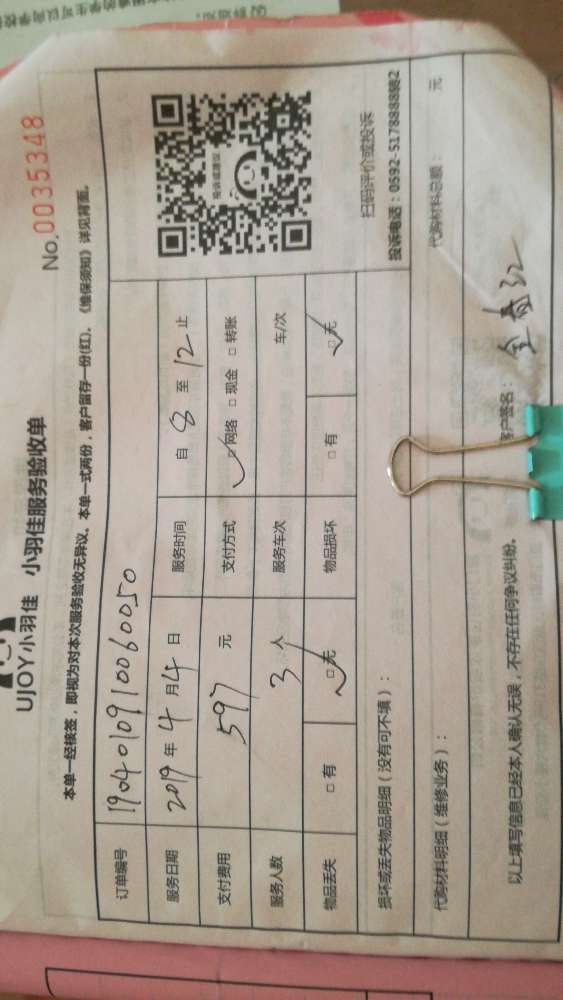 UJOY小羽佳 小羽佳服务验收单
No.0035348
本单一经核签，即视为对本次服务验收无异议。本单一式两份，客户留存一份(红)。《维保须知》详见背面。
订单编号 1904010910060050
服务日期 2019 年 4 月 4 日 服务时间 自 8 至 12 止
支付费用 597 元 支付方式 ☑网络 □ 现金 □ 转账
服务人数 3 人 服务车次 车/次
物品丢失 □ 有 ☑无 物品损坏 □ 有 ☑无
投诉或建议
扫码评价或投诉
投诉电话：0592-5178888转2
损坏或丢失物品明细（没有可不填）：
代购材料明细（维修业务）： 代购材料总额： 元
以上填写信息已经本人确认无误，不存在任何争议纠纷。 客户签名：